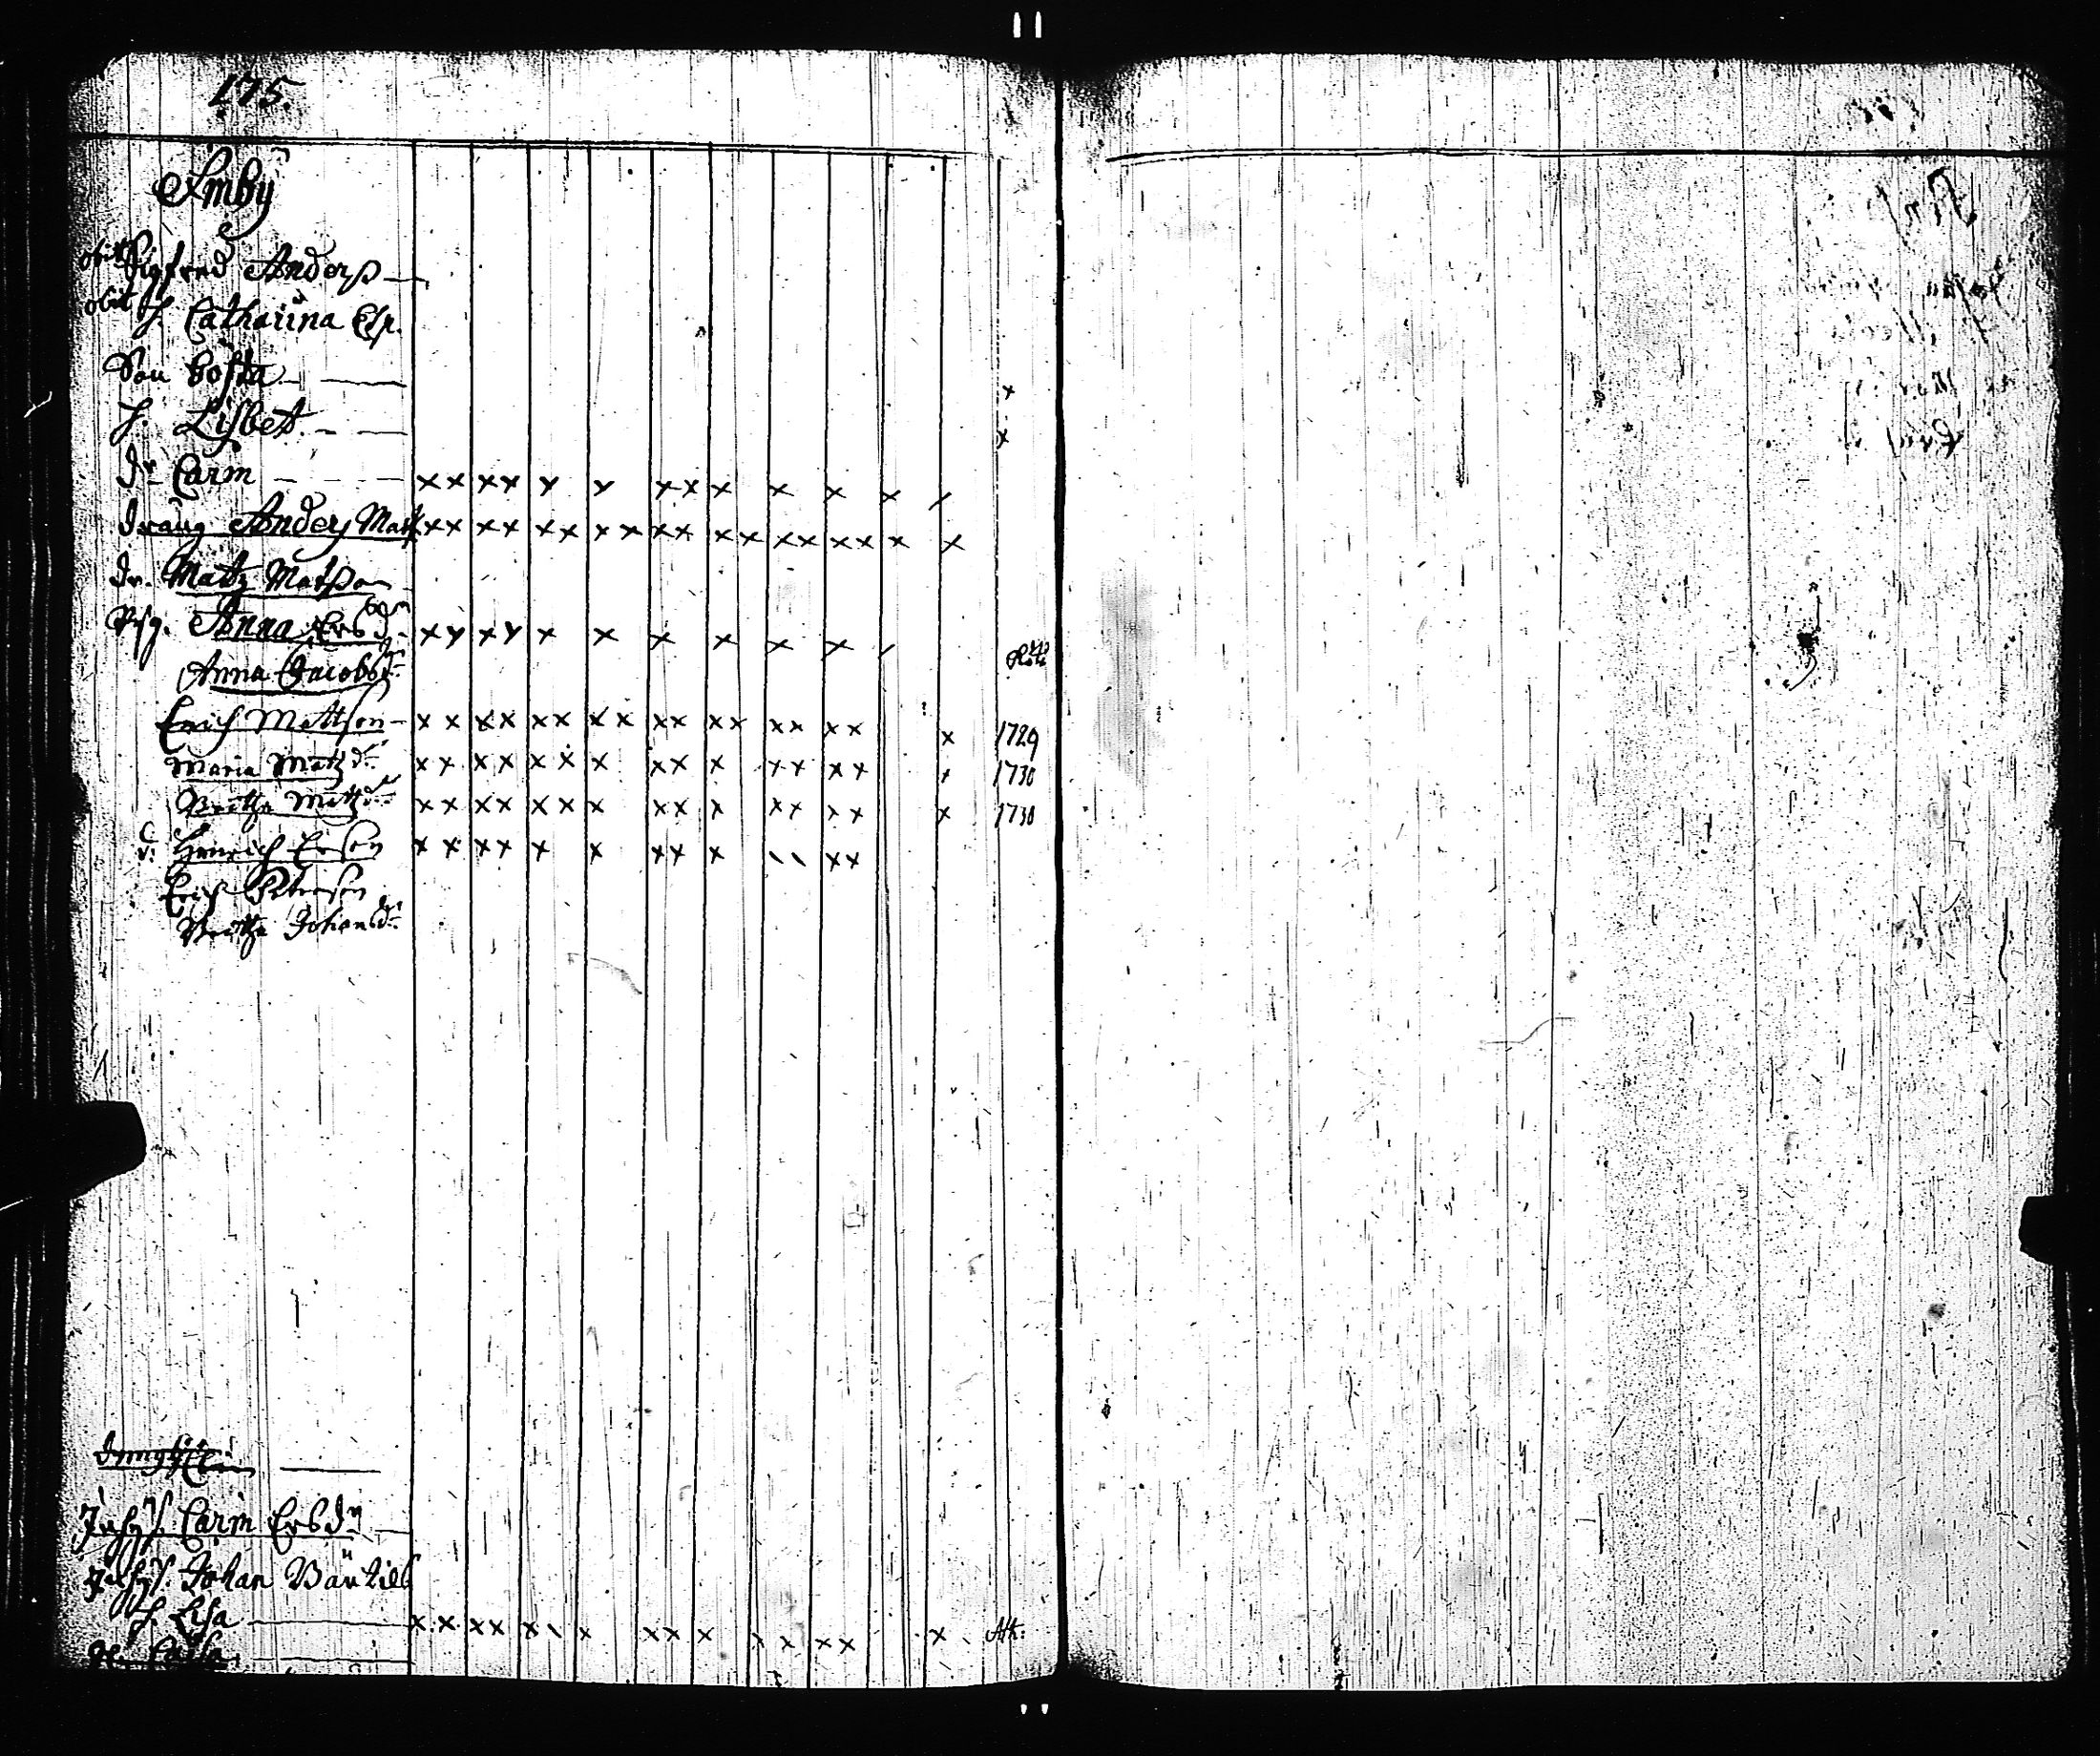 175.
Åmby
obiit Sigfred Anderss
obiit h. Catharina Esk.
Son Gösta
h. Lisbet
dr Carin x x x x x x x x x x x x x /
dräng Anders Matss x x x x x x x x x x x x x x x x x x
dr. Matts Matsson
Pig. Anna Ersdr x x x x x x x x x x x /
Anna Jacobsdr
Erich Mattson x x x x x x x x x x x x x x x x x 1729
Maria Matsdr x x x x x x x x x x x x x x 1730
Britha Mattsdr x x x x x x x x x x x x x x x 1730
Henrich Ersson x x x x x x x x x \ \ x x
Erich Peterson
Britha Johansdr
Inhys. Carin Ersdr
Inhys. Johan Bärtils
h. Lisa x x x x x \ x x x x \ x x x x